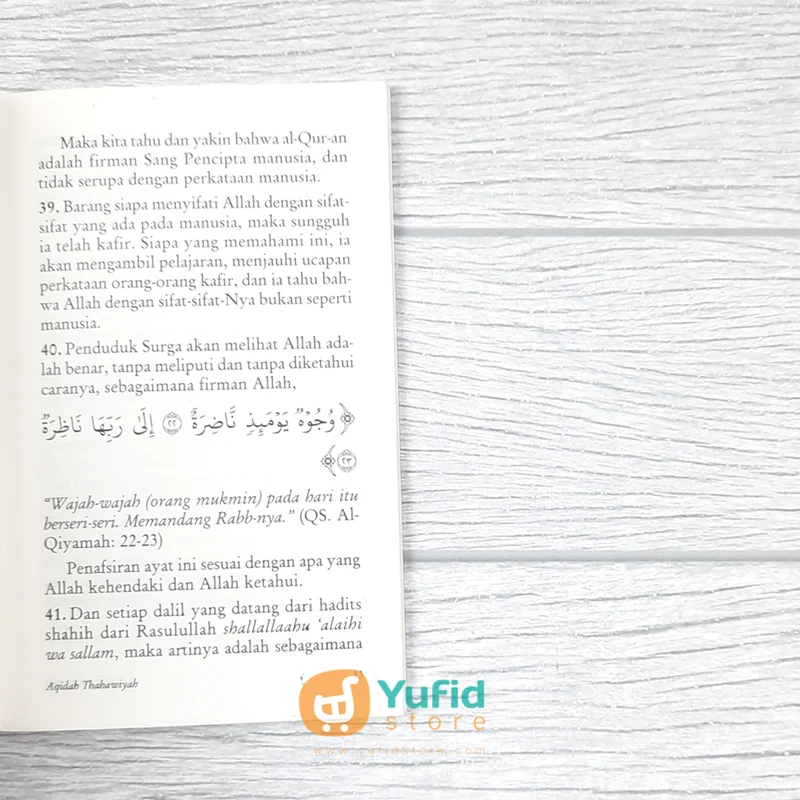 Maka kita tahu dan yakin bahwa al-Qur-an
adalah firman Sang Pencipta manusia, dan
tidak serupa dengan perkataan manusia.
39. Barang siapa menyifati Allah dengan sifat-
sifat yang ada pada manusia, maka sungguh
ia telah kafir. Siapa yang memahami ini, ia
akan mengambil pelajaran, menjauhi ucapan
perkataan orang-orang kafir, dan ia tahu bah-
wa Allah dengan sifat-sifat-Nya bukan seperti
manusia.
40. Penduduk Surga akan melihat Allah ada-
lah benar, tanpa meliputi dan tanpa diketahui
caranya, sebagaimana firman Allah,
﴿وُجُوهٌ يَوْمَئِذٍ نَّاضِرَةٌ ٢٢ إِلَىٰ رَبِّهَا نَاظِرَةٌ
٢٣﴾
“Wajah-wajah (orang mukmin) pada hari itu
berseri-seri. Memandang Rabb-nya.” (QS. Al-
Qiyamah: 22-23)
Penafsiran ayat ini sesuai dengan apa yang
Allah kehendaki dan Allah ketahui.
41. Dan setiap dalil yang datang dari hadits
shahih dari Rasulullah shallallaahu ‘alaihi
wa sallam, maka artinya adalah sebagaimana
Aqidah Thahawiyah
Yufid
store
www.yufidstore.com